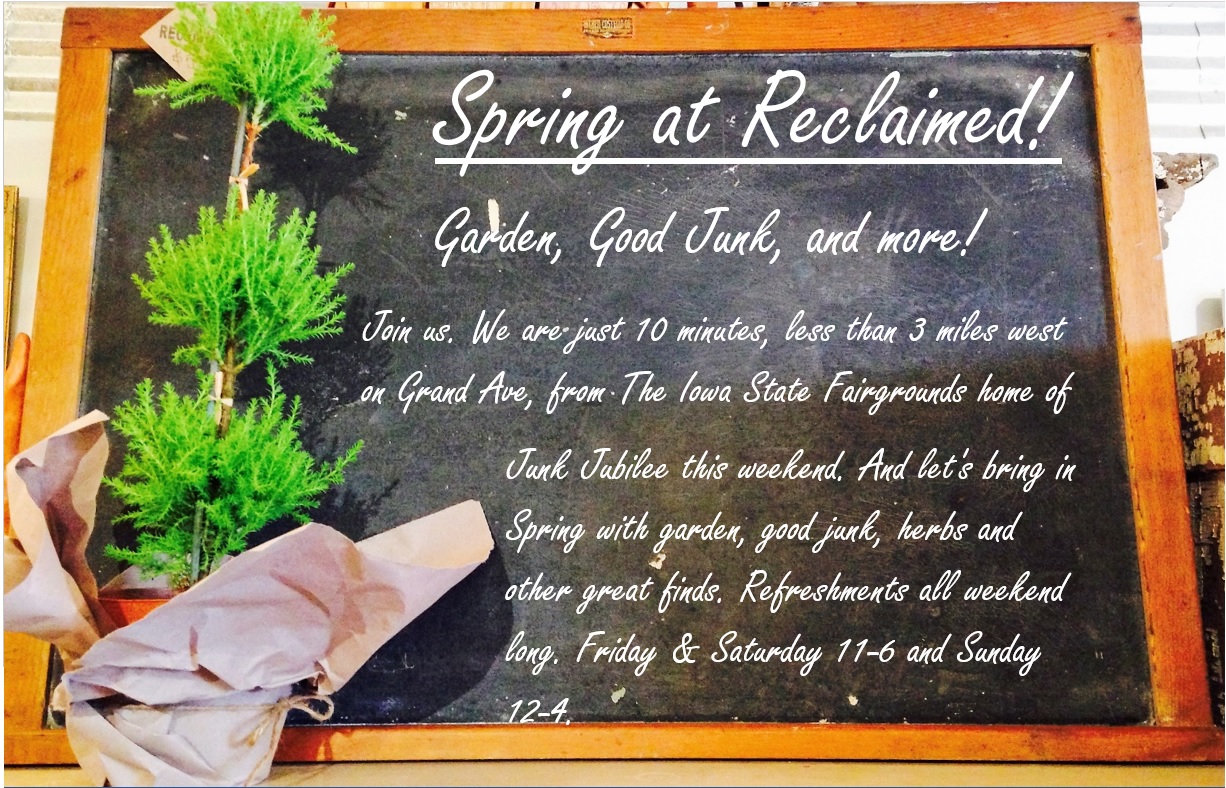 Spring at Reclaimed!
Garden, Good Junk, and more!
Join us. We are just 10 minutes, less than 3 miles west
on Grand Ave, from The Iowa State Fairgrounds home of
Junk Jubilee this weekend. And let's bring in
Spring with garden, good junk, herbs and
other great finds. Refreshments all weekend
long. Friday & Saturday 11-6 and Sunday
12-4.